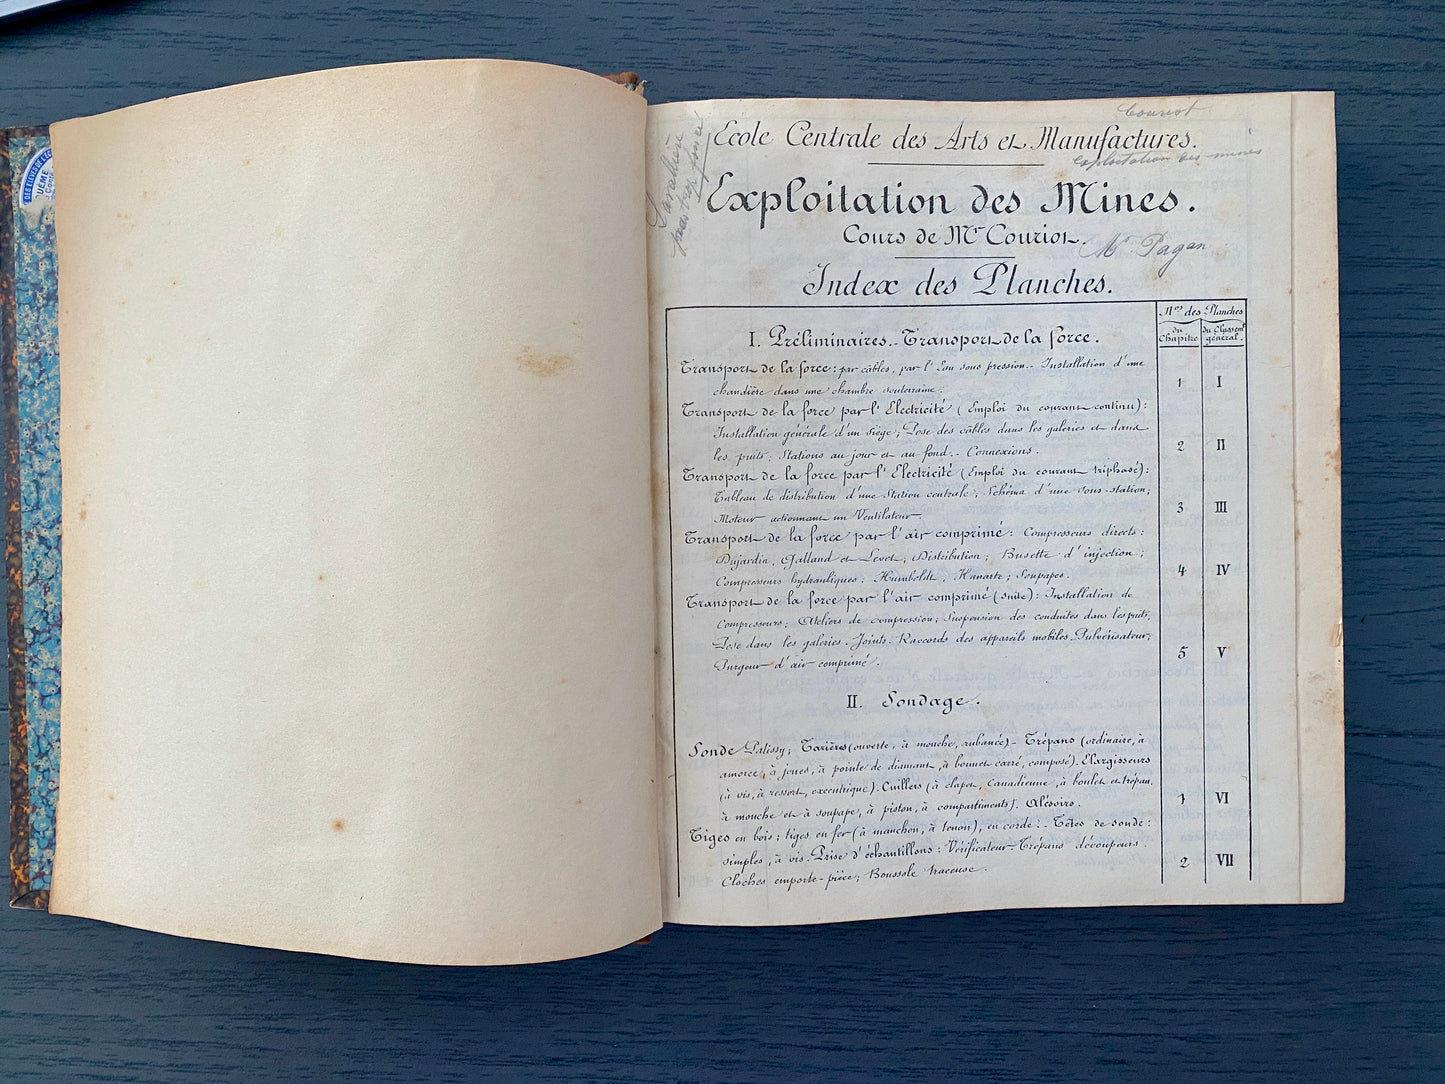 DES ELEVES DE L'EC
Couriot
Ecole Centrale des Arts et Manufactures.
Exploitation des mines
Exploitation des Mines.
Cours de Mr Couriot.
Mr Pagan
Index des Planches.
Nos des Planches
du Chapitre
du Classemt général.
I. Préliminaires. - Transport de la force.
Transport de la force : par câbles, par l'Eau sous pression. - Installation d'une
chaudière dans une chambre souterraine.
1 I
Transport de la force par l'Electricité (Emploi du courant continu) :
Installation générale d'un siège ; Pose des câbles dans les galeries et dans
les puits ; Stations au jour et au fond. - Connexions.
2 II
Transport de la force par l'Electricité (Emploi du courant triphasé) :
Tableau de distribution d'une Station centrale ; Schéma d'une sous-station ;
Moteur actionnant un Ventilateur.
3 III
Transport de la force par l'air comprimé : Compresseurs directs :
Dujardin, Galland et Levet ; Distribution ; Busette d'injection ;
Compresseurs hydrauliques : Humboldt, Hanarte ; Soupapes.
4 IV
Transport de la force par l'air comprimé (suite) : Installation de
Compresseurs ; Ateliers de compression ; Suspension des conduites dans les puits,
Pose dans les galeries - Joints - Raccords des appareils mobiles - Pulvérisateur ;
Purgeur d'air comprimé.
5 V
II. Sondage.
Sonde Palissy ; Tarières (ouverte, à mouche, rubanée) - Trépans (ordinaire, à
amorce, à joues, à pointe de diamant, à bonnet carré, composé). Elargisseurs
(à vis, à ressort, excentrique). Cuillers (à clapet, Canadienne, à boulet et trépan,
à mouche et à soupape, à piston, à compartiments). Alésoirs.
1 VI
Tiges en bois ; tiges en fer (à manchon, à tenon), en corde ; - Têtes de sonde :
simples, à vis - Prise d'échantillons : Vérificateur - Trépans découpeurs.
Cloches emporte-pièce ; Boussole traceuse.
2 VII